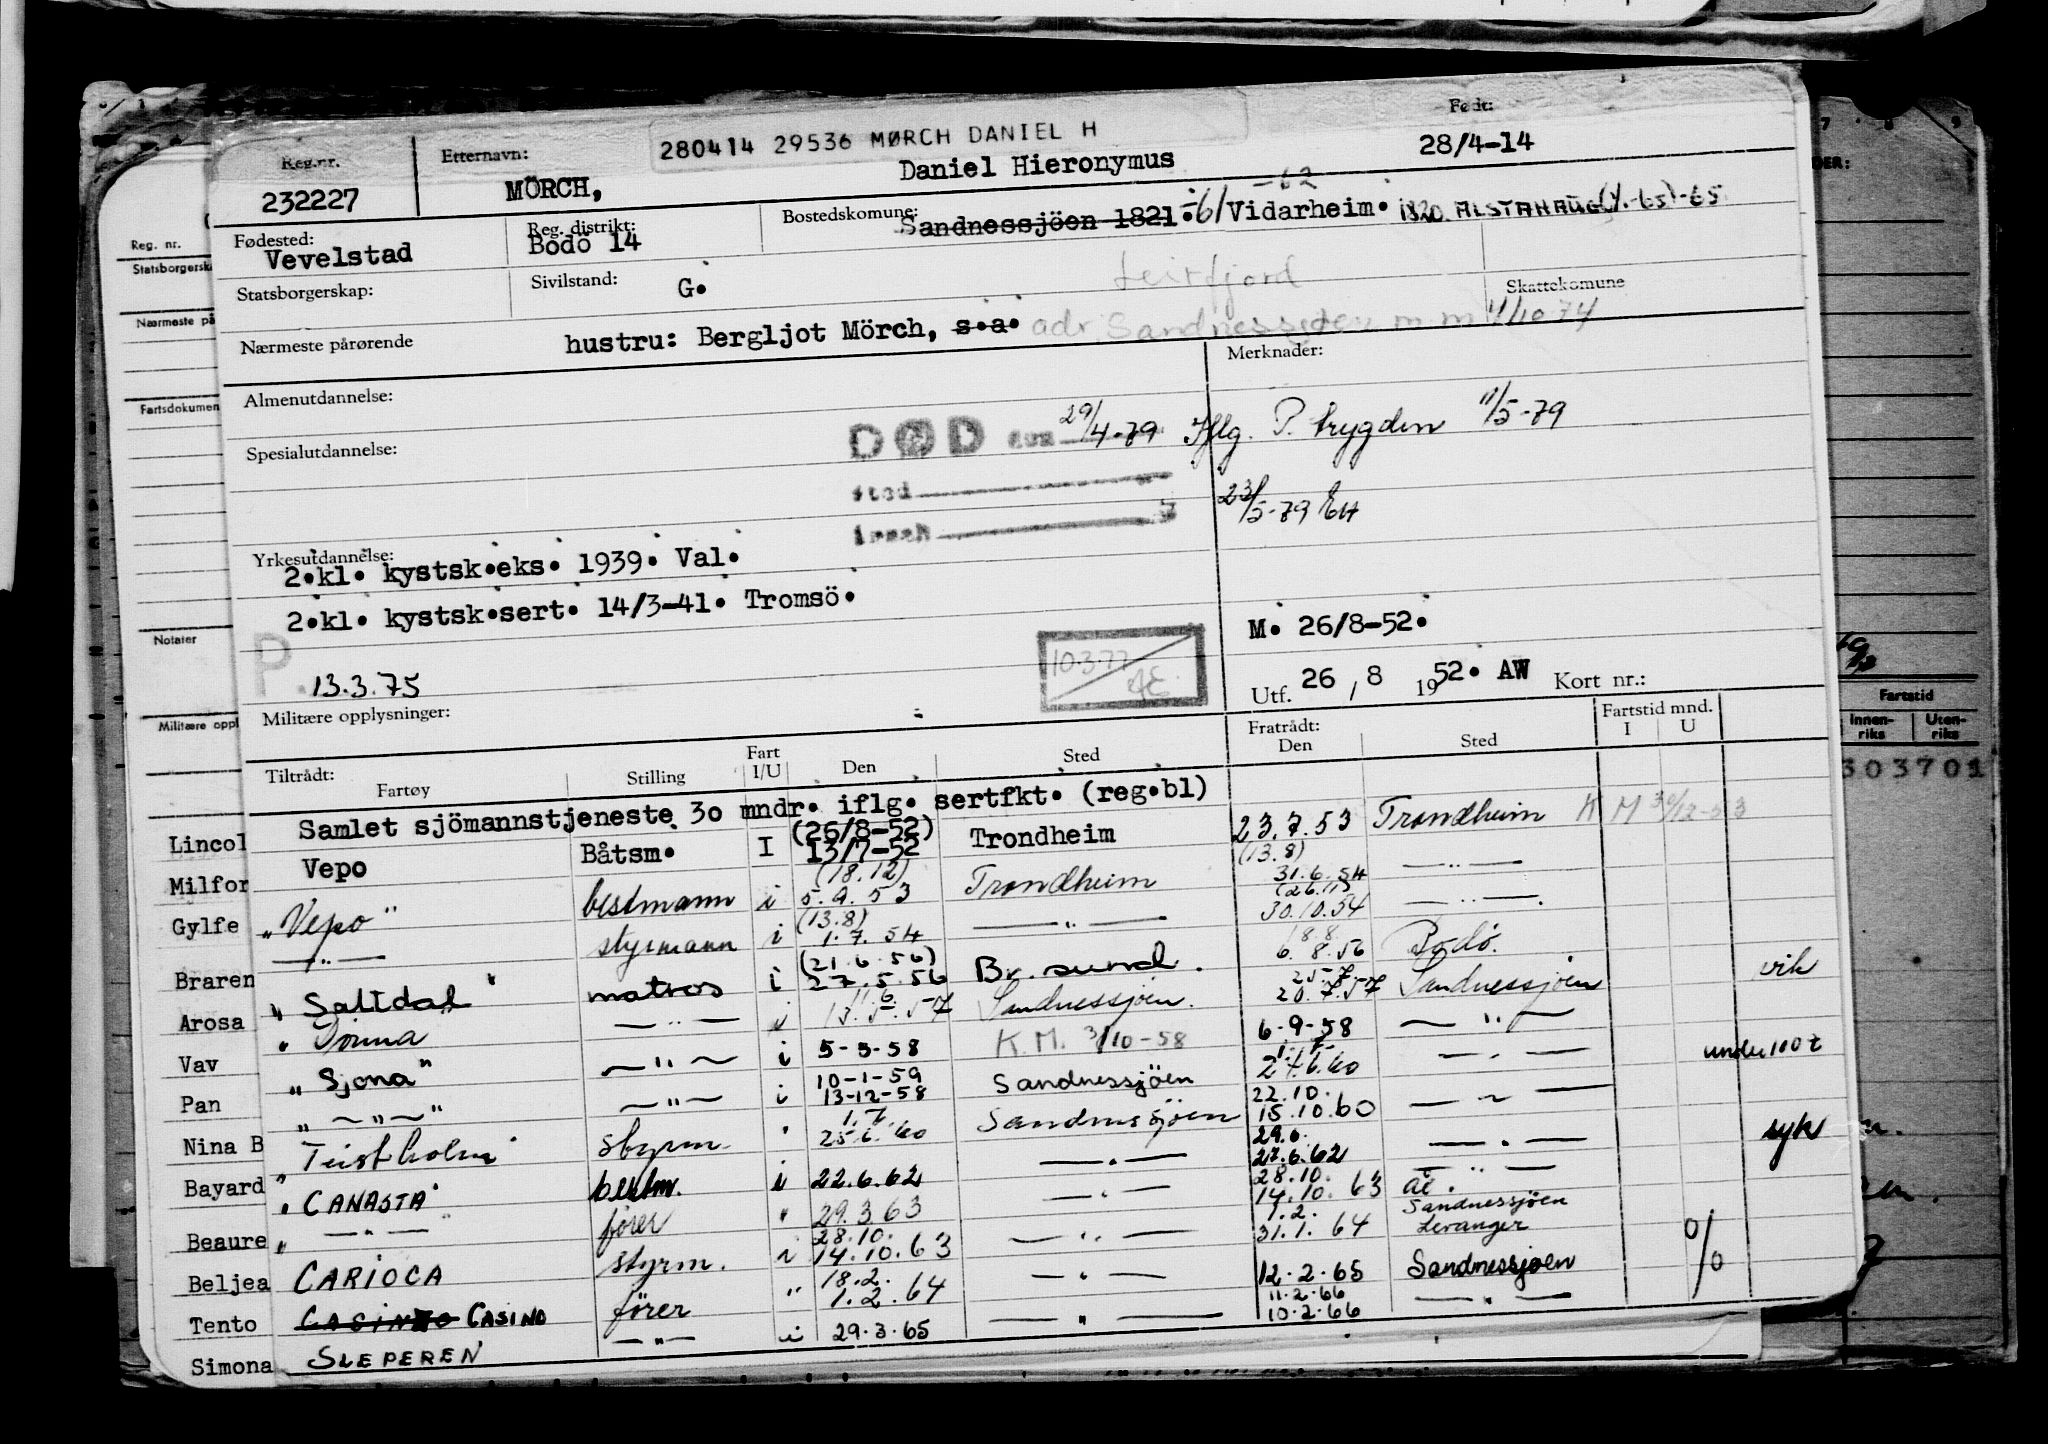 280414 29536 MØRCH DANIEL H
Født:
Reg.nr.
Etternavn:
Daniel Hieronymus
28/4-14
232227
MÖRCH,
-62
Fødested:
Reg. distrikt:
Bostedskomune:
Vevelstad
Bodö 14
Sandnessjöen 1821. -61 Vidarheim. 1820. ALSTAHAUG -65
Statsborgerskap:
Sivilstand:
G.
Leirfjord
Skattekomune
Nærmeste pårørende
hustru: Bergljot Mörch, s.a. adr. Sandnessjøen m.m 11/10 74
Almenutdannelse:
Merknader:
Spesialutdannelse:
DØD den 29/4-79 Iflg. P. trygden 11/5-79
sted
23/5-79 EH
Yrkesutdannelse:
2.kl. kystsk.eks. 1939. Val.
2.kl. kystsk.sert. 14/3-41. Tromsö.
M. 26/8-52.
P. 13.3.75
10.3.77
Utf. 26 / 8 1952. AW Kort nr.:
Militære opplysninger:
Tiltrådt:
Fartøy
Stilling
Fart I/U
Den
Sted
Fratrådt: Den
Sted
Fartstid mnd. I U
Samlet sjömannstjeneste 3o mndr. iflg. sertfkt. (reg.bl)
Vepo Båtsm. I (26/8-52) 13/7-52 Trondheim 23.7.53 (13.8) Trondheim K M 30/12-53
"Vepo" bestmann i (18.12) 5.9.53 Trondheim 31.6.54 — " —
— " — styrmann i (13.8) 1.7.54 — " — (26.11) 30.10.54 — " —.
"Saltdal" matros i (21.6.56) 27.5.56 Br.sund. 18.8. 6.8.56 Bodö.
"Dönna — " — i 11.6. 13.5.57 Sandnessjöen. 25.7. 20.7.57 Sandnessjöen vik
"Sjona" — " — i 5-5-58 K.M. 3/10-58 6-9-58 — " —
" — " — " — " — i 10-1-59 13-12-58 Sandnessjöen 1.7. 24.6.60 — " — under 100 t
"Teistholm" styrm. " 1.7. 25.6.60 Sandnessjöen 22.10. 15.10.60 — " —
"CANASTA" bestm. i 22.6.62 — " — 29.6. 27.6.62 — " — syk
" — " — " fører " 29.3.63 — " — 28.10. 14.10.63 — " —
CARIOCA styrm. i 28.10. 14.10.63 — " — 1.2. 31.1.64 Sandnessjöen Levanger
CASINO CASINO fører " 18.2. 1.2.64 — " — 12.2.65 Sandnessjøen %
SLEPEREN — " — i 29.3.65 — " — 11.2.66 10.2.66 — " —
Reg. nr.
Statsborgerska
Nærmeste på
Fartsdokumen
Notater
Militære oppl
Lincol
Milfor
Gylfe
Braren
Arosa
Vav
Pan
Nina B
Bayard
Beaure
Beljea
Tento
Simona
7 8 9
DER:
Fartstid
Innen-riks
Uten-riks
303701